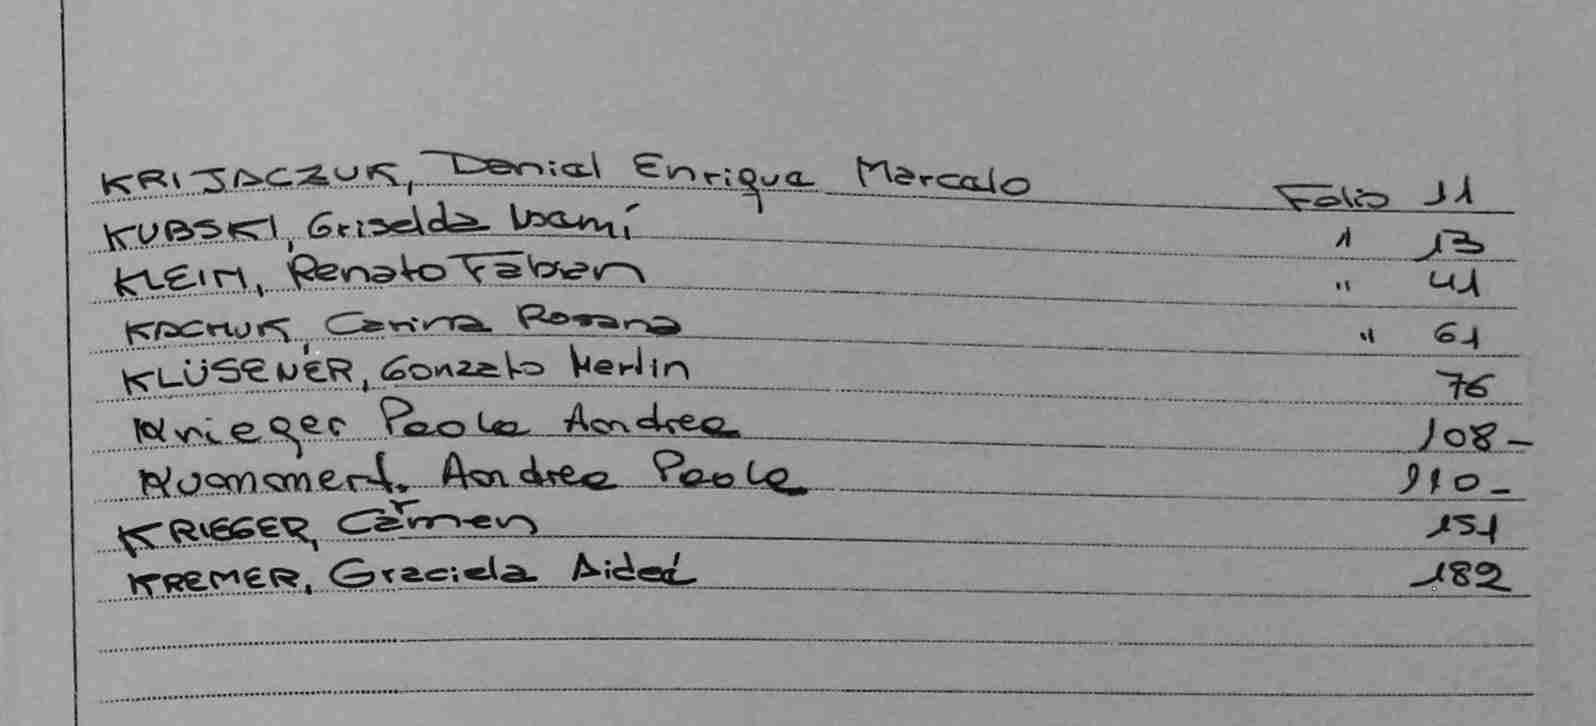 KRIJACZUK, Daniel Enrique Marcelo Folio 11
KUBSKI, Griselda Noemí " 13
KLEIM, Renato Fabian " 41
KACHUK, Carina Rosana " 61
KLÜSENER, Gonzalo Merlin 76
Krieger Paola Andrea 108-
Kuammert, Andrea Paola 110-
KRIEGER, Carmen 151
KREMER, Graciela Aideé 182